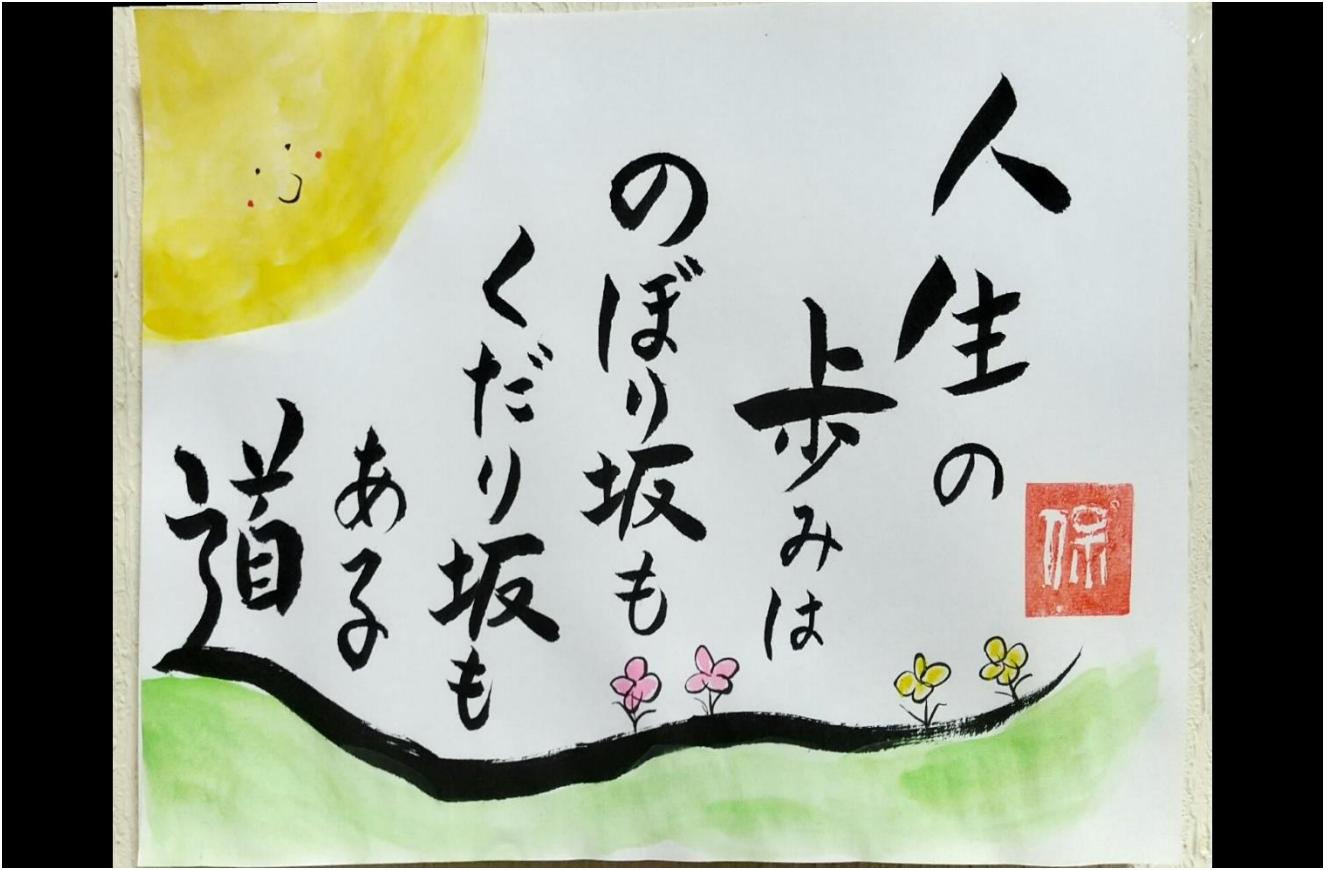 人生の
歩みは
のぼり坂も
くだり坂も
ある
道
保